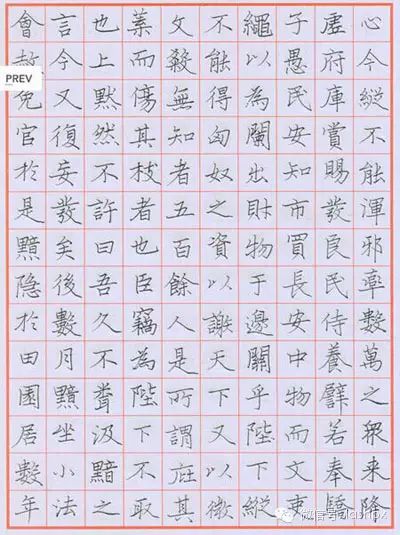 心今縱不能渾邪率數萬之眾来降
虛府庫賞賜發良民侍養譬若奉驕
子愚民安知市買長安中物而文吏
繩以為闌出財物于邊關乎陛下縱
不能得匈奴之資以謝天下又以微
文殺無知者五百餘人是所謂庇其
葉而傷其枝者也臣竊為陛下不取
也上默然不許曰吾久不聞汲黯之
言今又復妄發矣後數月黯坐小法
會赦免官於是黯隐於田園居數年
PREV
微信号